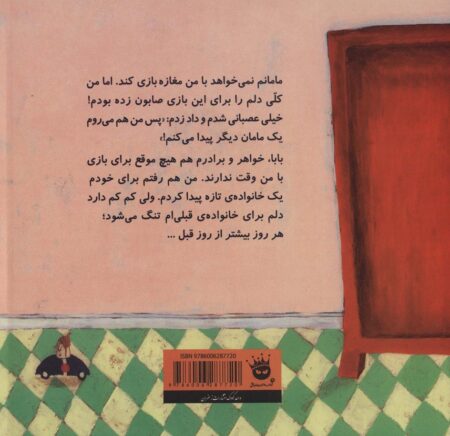 مامانم نمی‌خواهد با من مغازه بازی کند. اما من
کلّی دلم را برای این بازی صابون زده بودم!
خیلی عصبانی شدم و داد زدم: «پس من هم می‌روم
یک مامان دیگر پیدا می‌کنم!»
بابا، خواهر و برادرم هم هیچ موقع برای بازی
با من وقت ندارند. من هم رفتم برای خودم
یک خانواده‌ی تازه پیدا کردم. ولی کم کم دارد
دلم برای خانواده‌ی قبلی‌ام تنگ می‌شود؛
هر روز بیشتر از روز قبل ...
ISBN 9786006287720